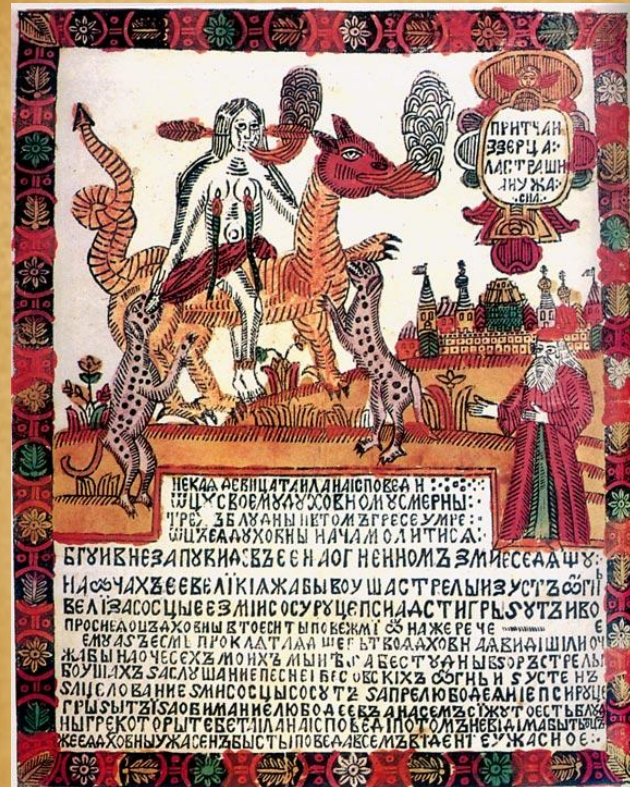 ПРИТЧАИ
ЗЗЕРЦА:
ЛАСТРАШН
АИУЖА:
СНА:
НЕКАѦ ДЕВИЦА ТАИЛА НА ІСПОВЕДИ
ѾЦꙊ СВОЕМУ ДУХОВНОМУ СМЕРНЫ
ТРЕХЪ БЛУДНЫ И ВТОМЪ ГРЕСЕ УМРЕ:
ѾЦЪ ЕѦ ДУХОВНЫ НАЧА МОЛИТИСѦ
БГУ И ВНЕЗАПУ ВИДѢ ВЪ СЕ НА ОГНЕННОМЪ ЗМИЕ СЕДѦШУ:
НА ОЧАХЪ ЕЕ ВЕЛІКІѦ ЖАБЫ ВО УШАС ТРЕЛЫ ИЗ УСТЪ ОГНЬ
ВЕЛІ ЗА СОСЦЫ ЕЕ ЗМІИ СОСУ РУЦЕ ПСИ АДСТИ ГРЫЗУТЪ И ВО
ПРОСИ ЕѦ ОЦЪ ДХОВНЫ ВТО ЕСИ ТЫ ПОВЕЖ МІ ОНА ЖЕ РЕЧЕ
ЕМУ АЗЪ ЕСМЬ ПРОКЛѦТАѦ ДЩЕРЬ ТВОѦ ДХОВНАѦ ВИДІШ ІЛИ ОЧ
ЖАБЫ НА ОЧЕСЕХЪ МОИХЪ ЗА БЕСТУДНЫ ВЗОРЪ СТРЕЛЫ
ВО УШАХЪ ЗА СЛУШАНИЕ ПЕСНЕІ БЕСОВСКІХЪ ОГНЬ ИЗ УСТЕНЪ
ЗА ЦЕЛОВАНИЕ ЗМИ СОСЦЫ СОСУТЪ ЗА ПРЕЛЮБОДЕѦНІЕ ПСИ РУЦЕ
ГРЫЗЫТЪ ЗА ОБИМАНИЕ ЛЮБОДЕЕВЪ А НАСЕМЪ СІЖУ ТО ЕСТЬ БЛУД
НЫ ГРЕ КОТОРЫ ТЕБЕ ТАІЛА НА ІСПОВЕДІ ПОТОМЪ НЕВІДІМА БЫТЬ ОЦЪ
ЖЕ ЕѦ ДХОВНЫ УЖАСЕНЪ БЫСТЬ І ПОВЕДА ВСЕМЪ ВІДЕНІЕ УЖАСНОЕ: